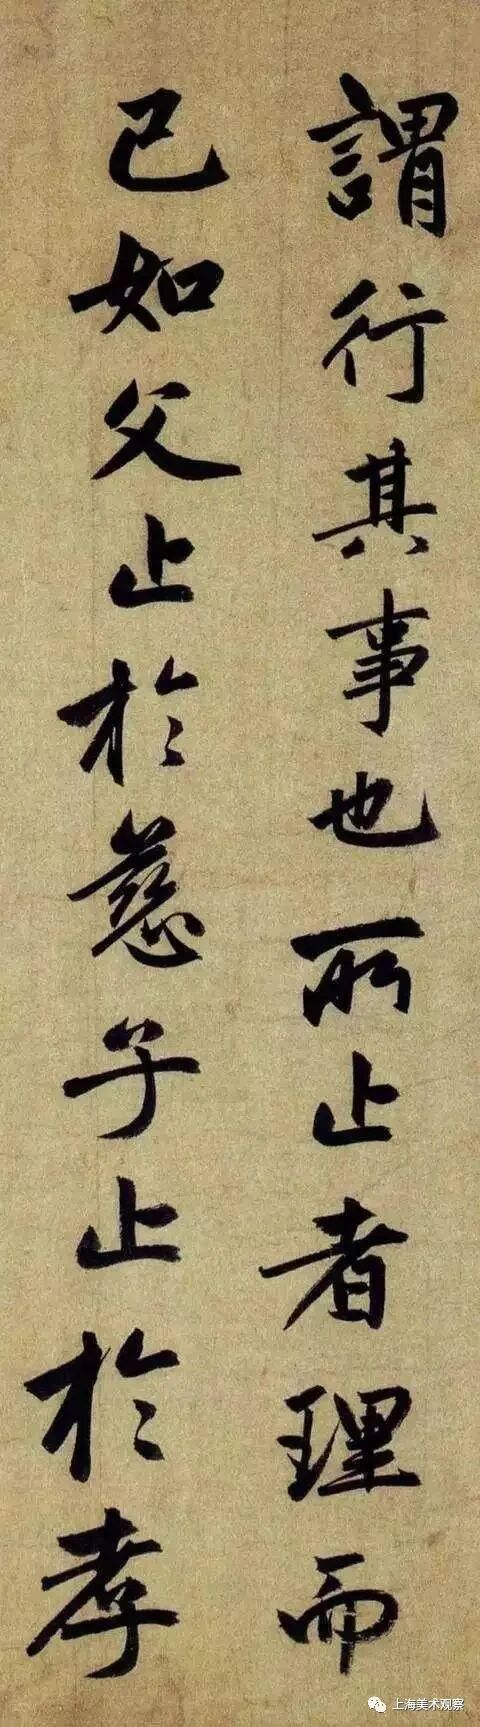 謂行其事也所止者理而
已如父止於慈子止於孝
上海美术观察